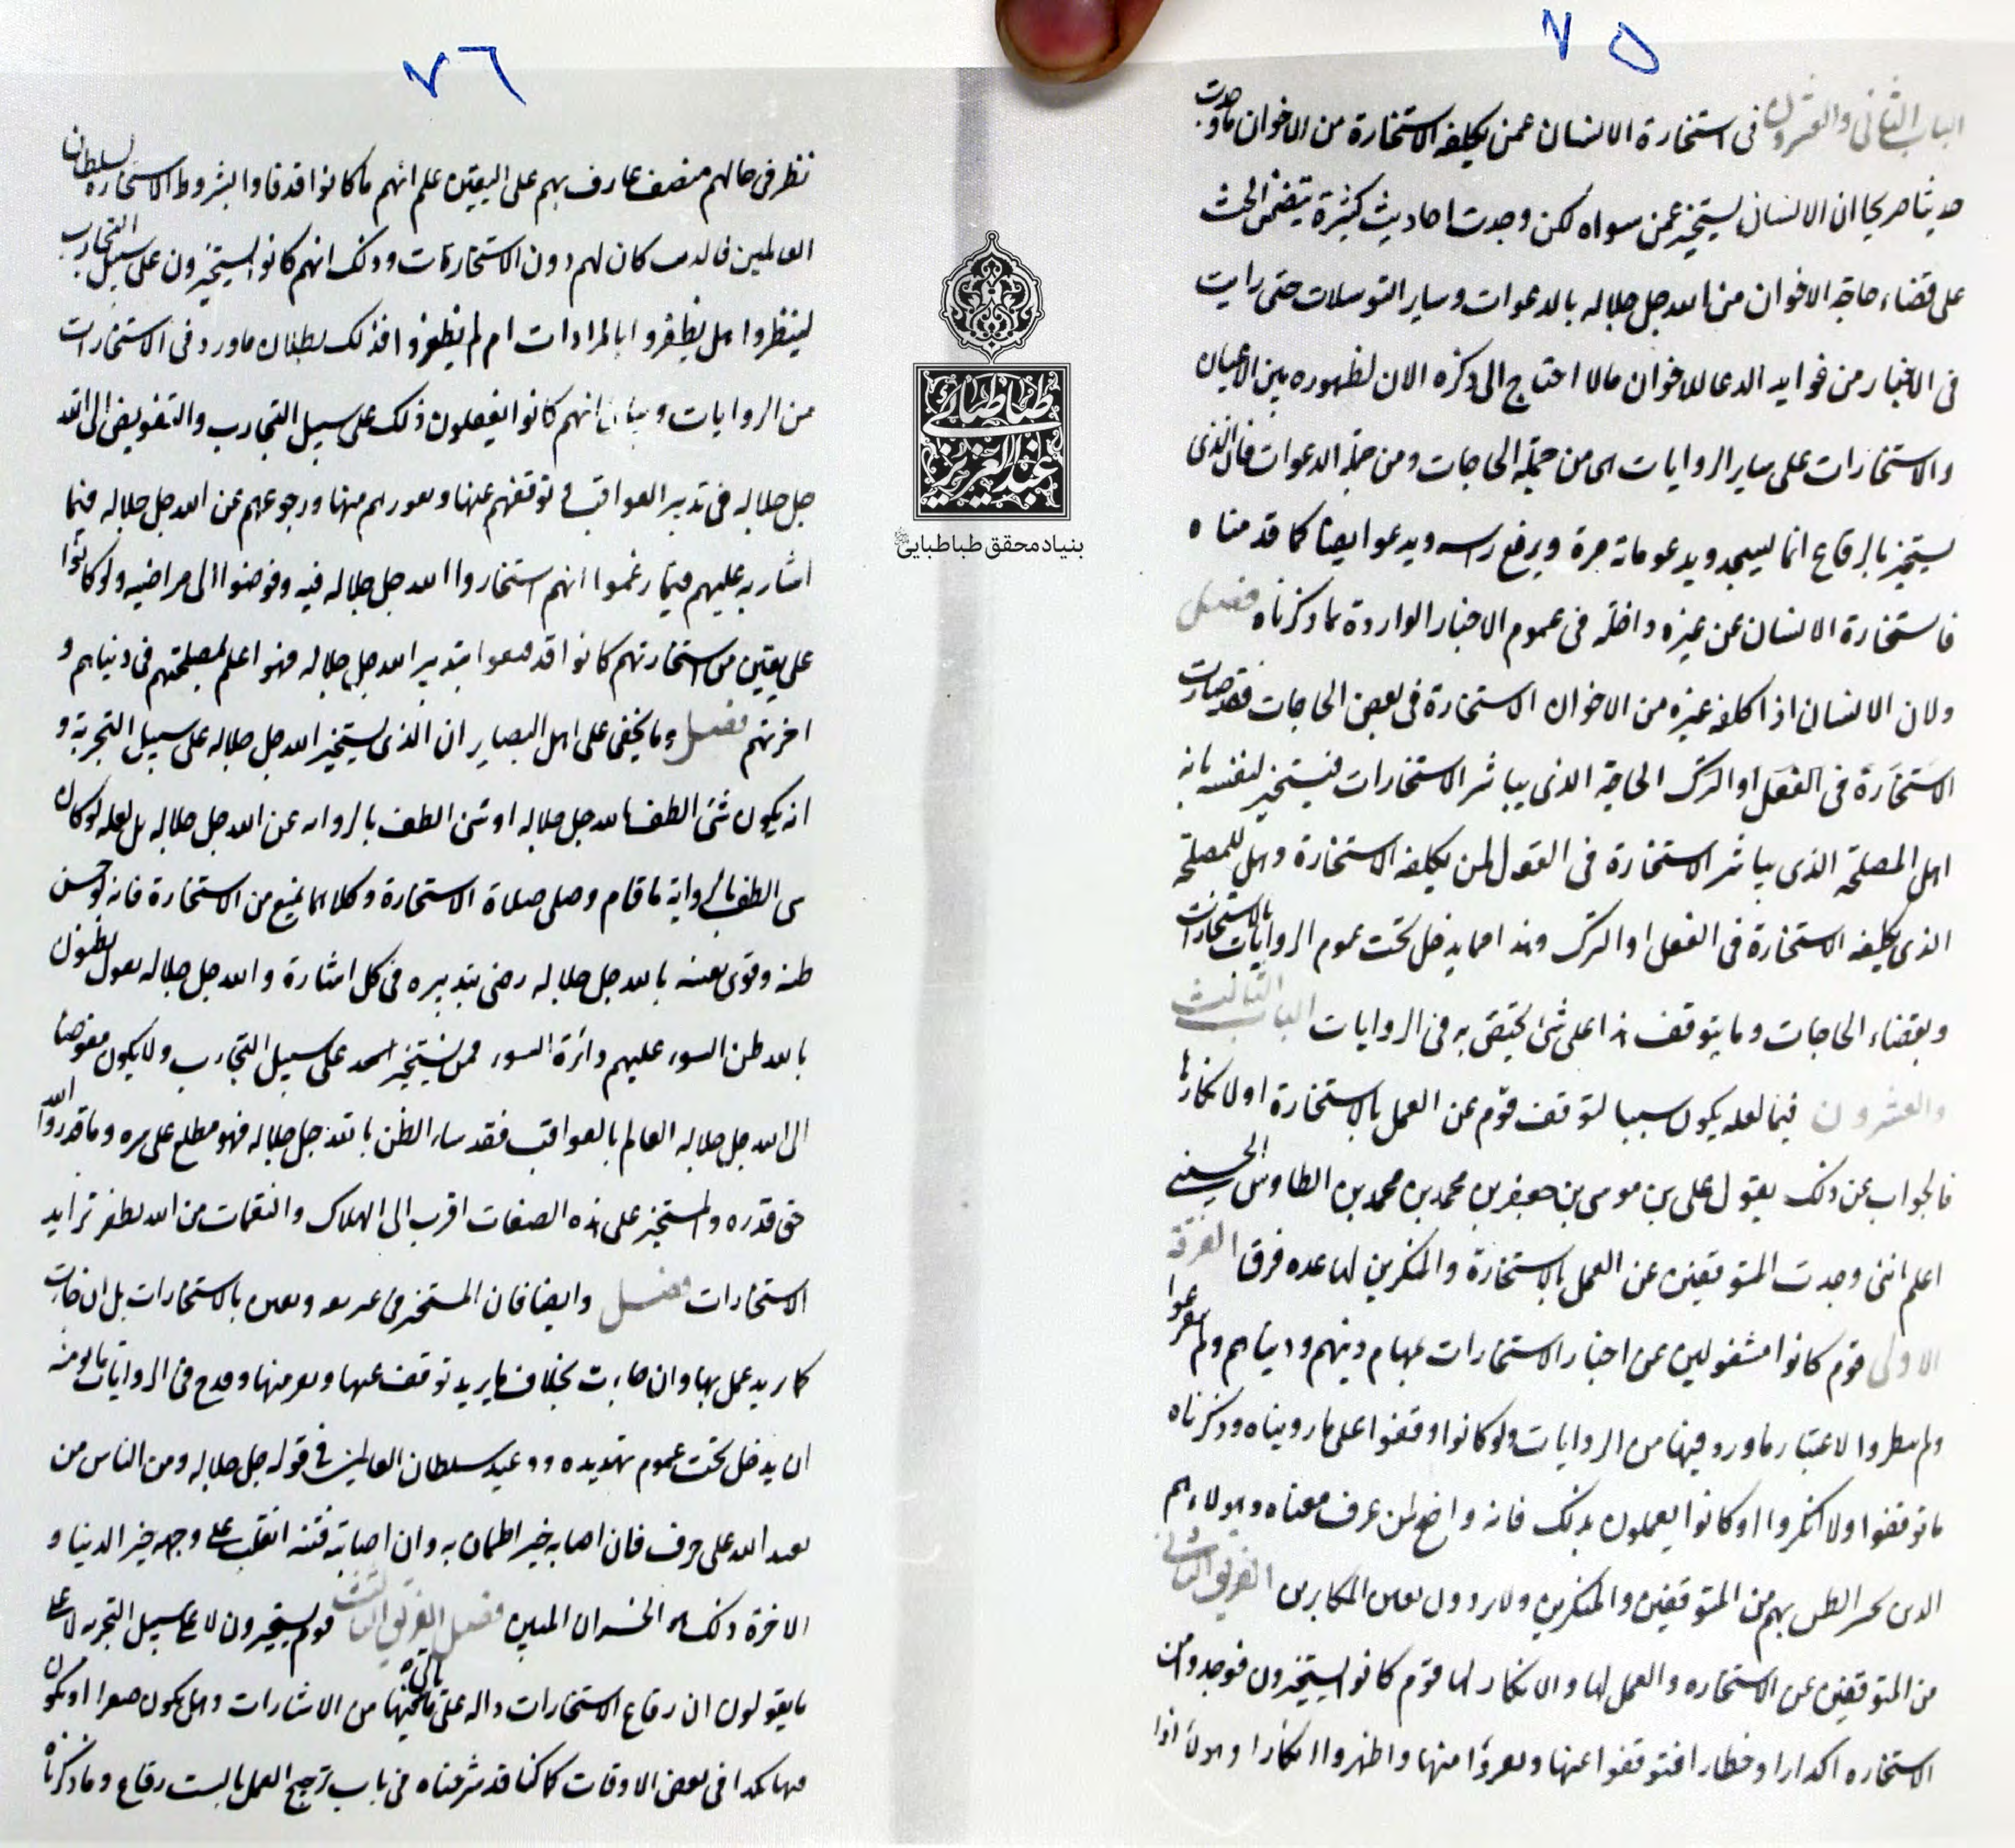 ٧٥
الباب الثاني والعشرون في استخارة الانسان عمن يكلفه الاستخارة من الاخوان ما وجدت
حديثا صريحا ان الانسان يستخير عمن سواه لكن وجدت احاديث كثيرة يتضمن الحث
على قضاء حاجة الاخوان من الله جل جلاله بالدعوات وساير التوسلات حتى رايت
في الاخبار من فوايد الدعا للاخوان مالا احتاج الى ذكره الان لظهوره بين الاعيان
والاستخارات على ساير الروايات هي من جملة الحاجات ومن جملة الدعوات فان الذي
يستخير بالرقاع انما يسجد ويدعو مائة مرة ويرفع راسه ويدعو ايضا كما قدمناه
فاستخارة الانسان عن غيره داخلة في عموم الاخبار الواردة بما ذكرناه فصل
ولان الانسان اذا كلفه غيره من الاخوان الاستخارة في بعض الحاجات فقد صارت
الاستخارة في الفعل او الترك الحاجة الذي يباشر الاستخارات فيستخير لنفسه بانه
هل المصلحة الذي يباشر الاستخارة في القول لمن يكلفه الاستخارة وهل للمصلحة
الذي يكلفه الاستخارة في الفعل او الترك وهذا مما يدخل تحت عموم الروايات بالاستخارات
وبقضاء الحاجات وما يتوقف هذا على شئ يختص به في الروايات الباب الثالث
والعشرون فيما لعله يكون سببا لتوقف قوم عن العمل بالاستخارة او لانكارها
فالجواب عن ذلك يقول علي بن موسى بن جعفر بن محمد بن محمد بن الطاوس الحسيني
اعلم انني وجدت المتوقفين عن العمل بالاستخارة والمنكرين لها عده فرق الفرقة
الاولى قوم كانوا مشغولين عن اخبار الاستخارات بمهام دينهم ودنياهم ولم
ولم الاعتبار ما ورد فيها من الروايات ولو كانوا وقفوا على ما رويناه وذكرناه
ما توقفوا ولا انكروا او كانوا يعملون بذلك فانه واضح لمن عرف معناه وهولاء هم
الذين الظن بهم من المتوقفين والمنكرين ولا المكابرين الفريق الثاني
من المتوقفين عن الاستخاره والعمل لها والانكار لها قوم كانوا يستخيرون فوجدوا من
الاستخاره اكدارا وخطارا فتوقفوا عنها ونفروا منها واظهروا انكارا وهولاء اذا
٧٦
نظر في حالهم منصف عارف بهم على اليقين علم انهم ما كانوا قد قاوا بشروط الاستخاره لسلطان
العالمين كان لهم دون الاستخارات وذلك انهم كانوا يستخيرون على سبيل التجارب
لينظروا هل يظفروا بالمرادات ام لم يظفروا فذلك بطلان ما ورد في الاستخارات
من الروايات انهم كانوا يفعلون ذلك على سبيل التجارب والتفويض الى الله
جل جلاله في تدبير العواقب توقفهم عنها ونفورهم منها ورجوعهم عن الله جل جلاله فيما
اشار به عليهم فيما زعموا انهم استخاروا الله جل جلاله فيه وفوضوا الى مراضيه ولو كانوا
على يقين من استخارتهم كانوا قد قنعوا بتدبير الله جل جلاله فهو اعلم بمصلحتهم في دنياهم و
اخرتهم فصل وما يخفى على اهل البصاير ان الذي يستخير الله جل جلاله على سبيل التجربة و
انه يكون سئ الظن بالله جل جلاله او سئ الظن بالروايه عن الله جل جلاله بل لعله لو كان
سئ الظن بالرواية ما قام وصلى صلاة الاستخارة وكلاهما يمنع من الاستخارة فانه لو حسن
ظنه وقوي يقينه بالله جل جلاله رضي بتدبيره في كل اشارة والله جل جلاله يقول يظنون
بالله ظن السوء عليهم دائرة السوء فمن يستخير الله على سبيل التجارب ولا يكون مفوضا
الى الله جل جلاله العالم بالعواقب فقد ساء الظن بالله جل جلاله فهو مطلع على سره وما قدروا الله
حق قدره والمستخير على هذه الصفات اقرب الى الهلاك والنقمات من ان يظفر
الاستخارات فصل وايضا فان المستخير بالاستخارات بل ان جاءت
كما يريد عمل بها وان جاءت بخلاف ما يريد توقف عنها ونفر منها وقدح في الروايات
ان يدخل تحت عموم تهديده ووعيد سلطان العالمين في قوله جل جلاله ومن الناس من
يعبد الله على حرف فان اصابه خير اطمان به وان اصابته فتنه انقلب على وجهه خسر الدنيا و
الاخرة ذلك هو الخسران المبين فصل الفريق الثالث قوم يستخيرون لا على سبيل التجربه
ما يقولون ان رقاع الاستخارات داله على من الاشارات وهل يكون او يكون
في بعض الاوقات كما كنا قد شرحناه في باب ترجيح العمل بالست رقاع وما ذكرناه
طباطبائی
عبدالعزیز
بنیاد محقق طباطبایی